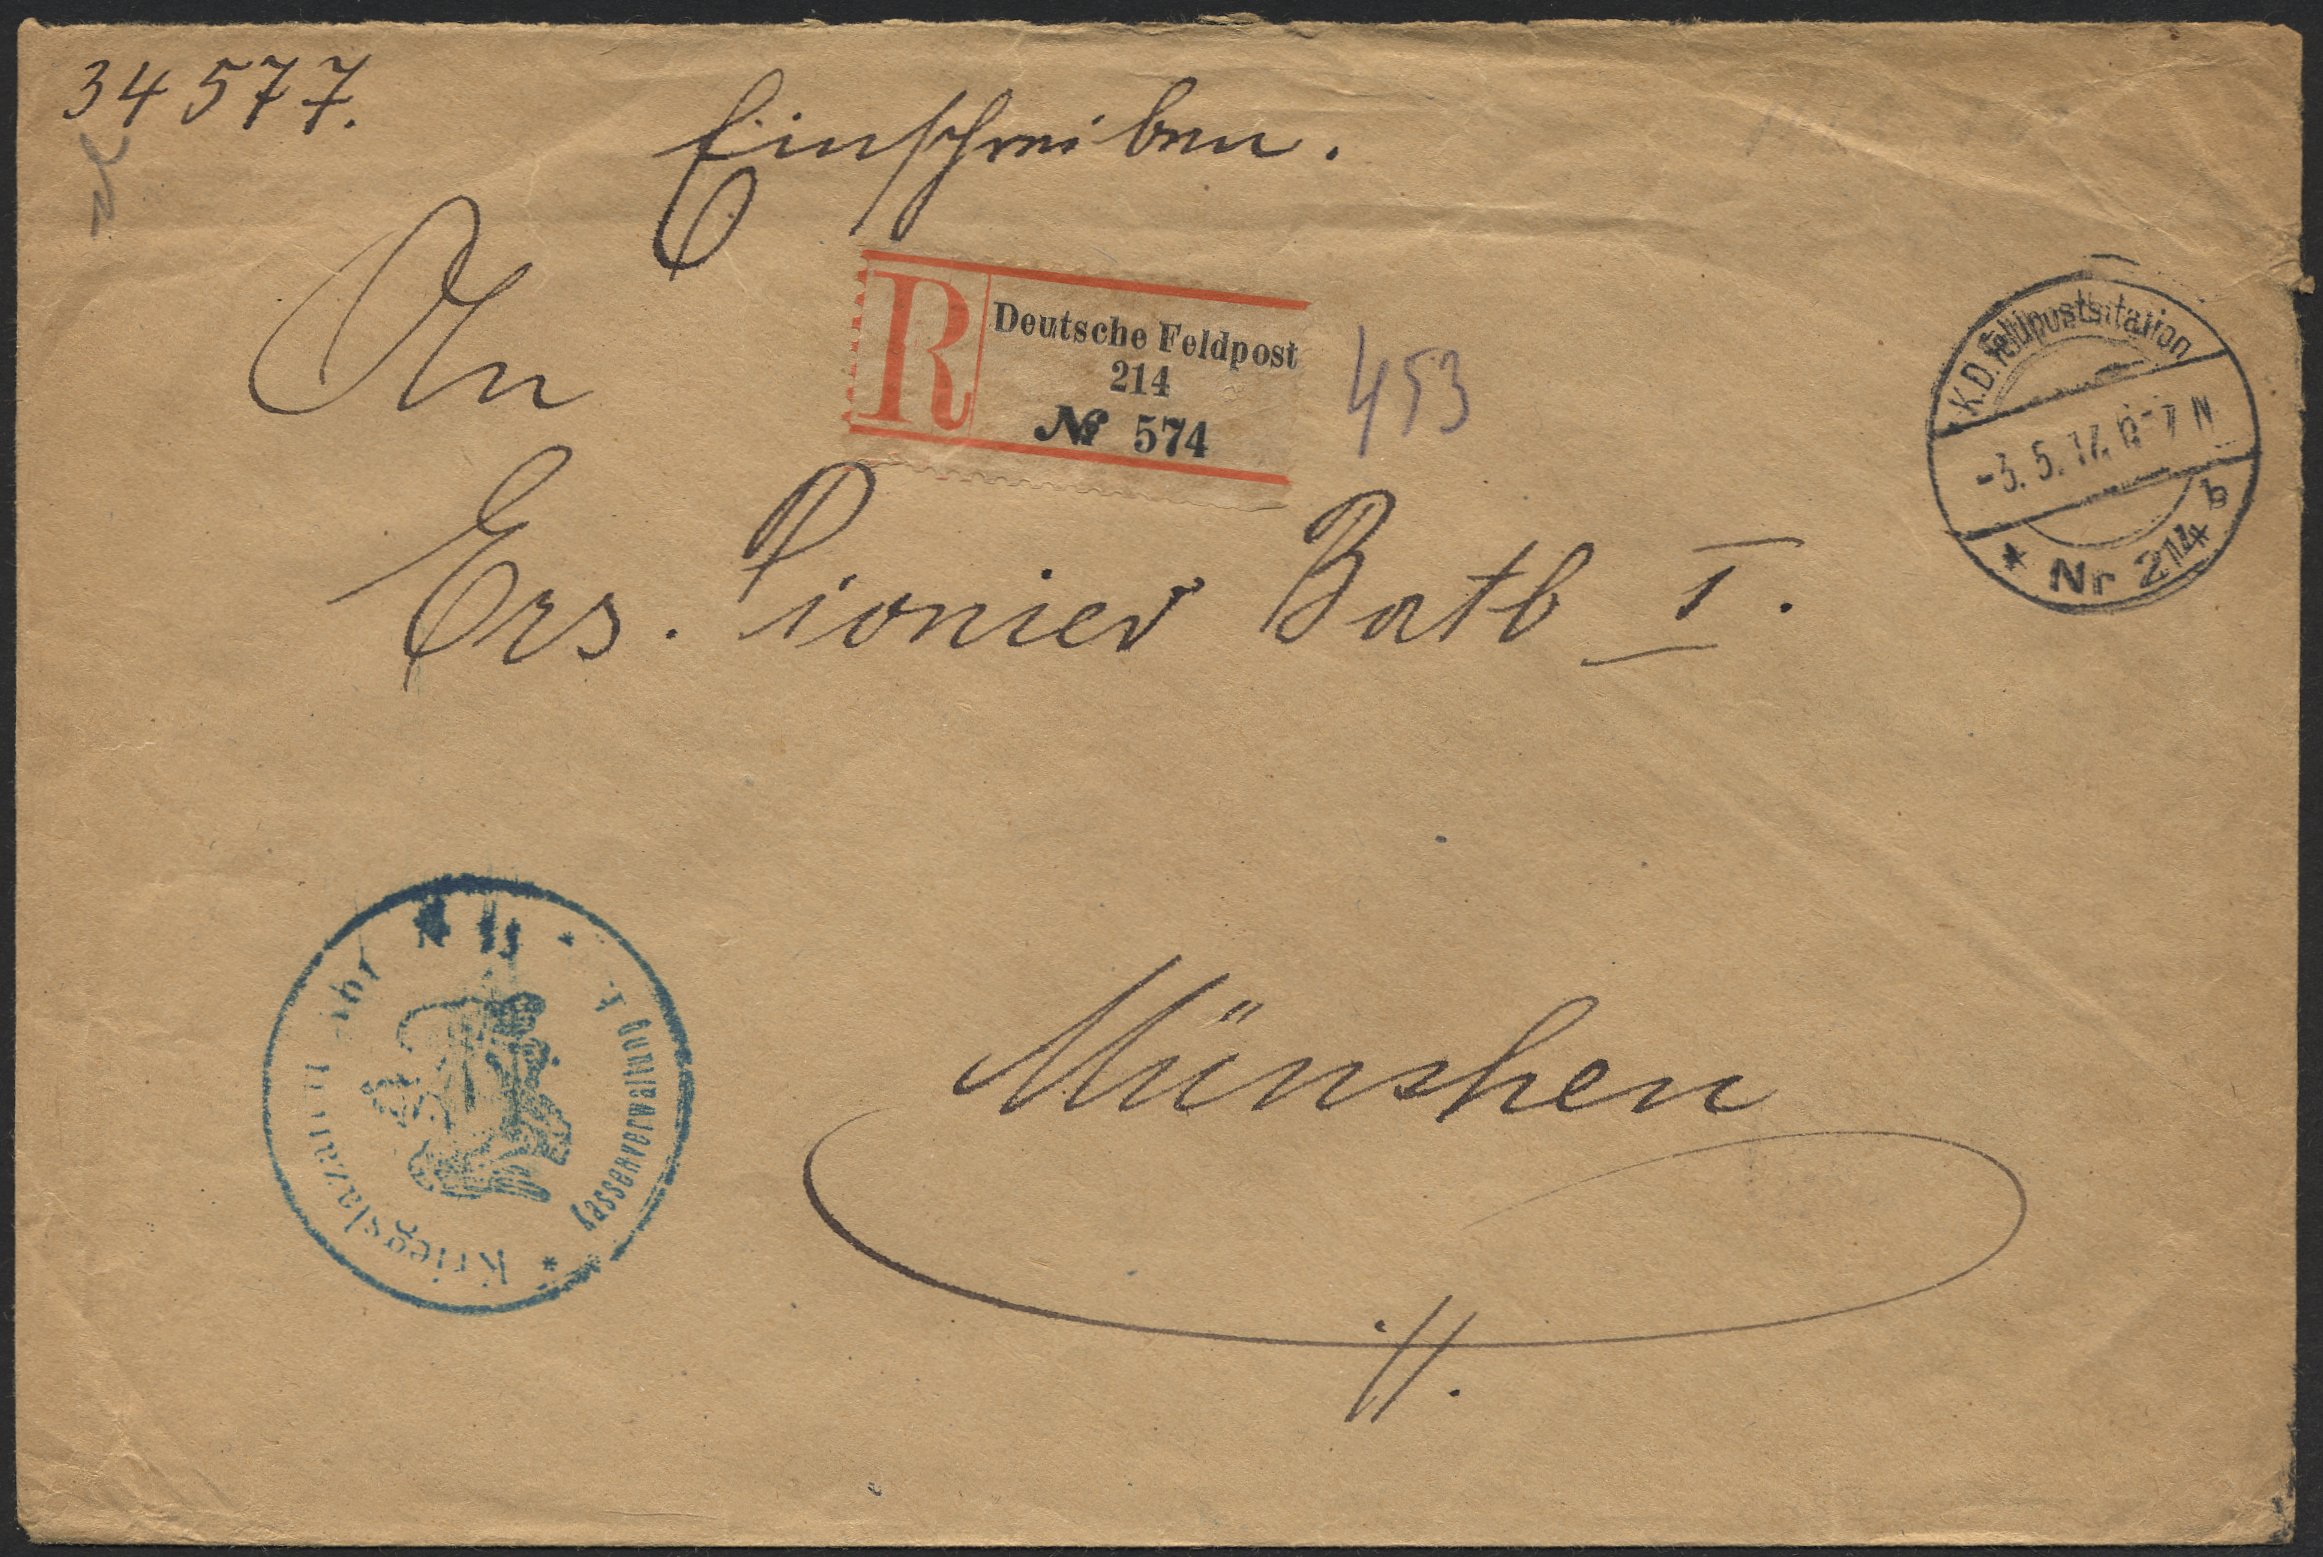 34577.
Einschreiben.
An
R
Deutsche Feldpost
214
№ 574
453
K.D. Feldpoststation
-3.5.17. 6-7 N
* Nr 214 b
Ers. Pionier Batl I.
München
* Kriegslazarett Abt
Kassenverwaltung